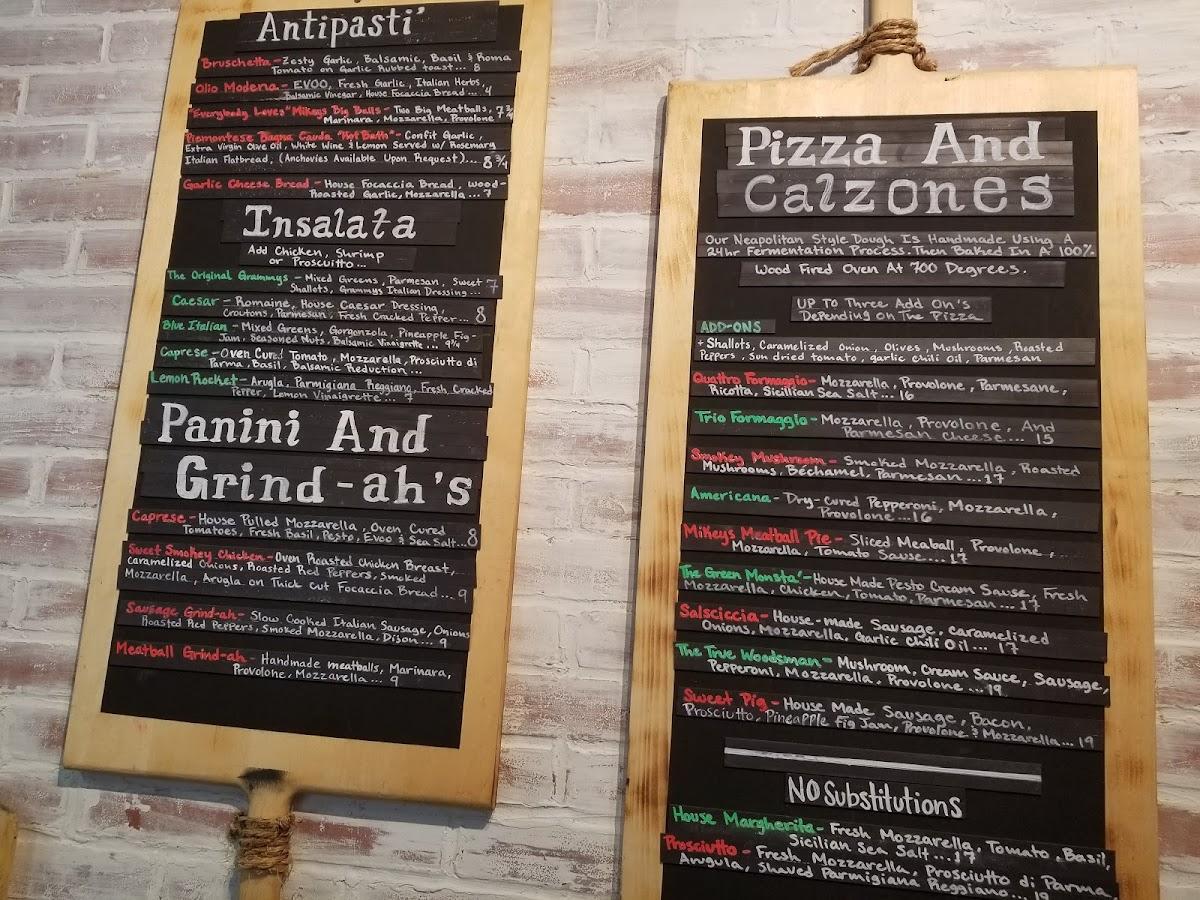 Antipasti'
Bruschetta - Zesty Garlic, Balsamic, Basil & Roma
Tomato on Garlic Rubbed toast... 8
Olio Modena - EVOO, Fresh Garlic, Italian Herbs,
Balsamic Vinegar, House Focaccia Bread... 4
"Everybody Loves" Mikeys Big Balls - Two Big Meatballs, 7 3/4
Marinara, Mozzarella, Provolone
Piemontese Bagna Cauda "Hot Bath" - Confit Garlic,
Extra Virgin Olive Oil, White Wine & Lemon Served w/ Rosemary
Italian Flatbread, (Anchovies Available Upon Request)... 8 3/4
Garlic Cheese Bread - House Focaccia Bread, Wood-
Roasted Garlic, Mozzarella... 7
Insalata
Add Chicken, Shrimp
or Proscuitto...
The Original Grammys - Mixed Greens, Parmesan, Sweet 7
Shallots, Grammys Italian Dressing...
Caesar - Romaine, House Caesar Dressing,
Croutons, Parmesan, Fresh Cracked Pepper... 8
Blue Italian - Mixed Greens, Gorgonzola, Pineapple Fig-
Jam, Seasoned Nuts, Balsamic Vinaigrette... 9 1/4
Caprese - Oven Cured Tomato, Mozzarella, Prosciutto di
Parma, Basil, Balsamic Reduction...
Lemon Rocket - Arugla, Parmigiana Reggiano, Fresh Cracked
Pepper, Lemon Vinaigrette... 7
Panini And
Grind-ah's
Caprese - House Pulled Mozzarella, Oven Cured
Tomatoes, Fresh Basil, Pesto, Evoo & Sea Salt... 8
Sweet Smokey Chicken - Oven Roasted Chicken Breast,
Caramelized Onions, Roasted Red Peppers, Smoked
Mozzarella, Arugla on Thick Cut Focaccia Bread... 9
Sausage Grind-ah - Slow Cooked Italian Sausage, Onions
Roasted Red Peppers, Smoked Mozzarella, Dijon... 9
Meatball Grind-ah - Handmade meatballs, Marinara,
Provolone, Mozzarella... 9
Pizza And
Calzones
Our Neapolitan Style Dough Is Handmade Using A
24hr Fermentation Process. Then Baked In A 100%
Wood Fired Oven At 700 Degrees.
Up To Three Add On's
Depending on The Pizza
ADD-ONS
+ Shallots, Caramelized Onion, Olives, Mushrooms, Roasted
Peppers, Sun dried tomato, garlic chili Oil, Parmesan
Quattro Formaggio - Mozzarella, Provolone, Parmesane,
Ricotta, Sicillian Sea Salt... 16
Trio Formaggio - Mozzarella, Provolone, And
Parmesan Cheese... 15
Smokey Mushroom - Smoked Mozzarella, Roasted
Mushrooms, Béchamel, Parmesan... 17
Americana - Dry-cured Pepperoni, Mozzarella,
Provolone... 16
Mikeys Meatball Pie - Sliced Meaball, Provolone,
Mozzarella, Tomato Sause.... 17
The Green Monsta' - House Made Pesto Cream Sause, Fresh
Mozzarella, Chicken, Tomato, Parmesan... 17
Salsciccia - House-made Sausage, Caramelized
Onions, Mozzarella, Garlic Chili Oil... 17
The True Woodsman - Mushroom, Cream Sauce, Sausage,
Pepperoni, Mozzarella, Provolone... 19
Sweet Pig - House Made Sausage, Bacon,
Prosciutto, Pineapple Fig Jam, Provolone & Mozzarella... 19
NO Substitutions
House Margherita - Fresh Mozzarella, Tomato, Basil,
Sicilian Sea Salt... 17
Prosciutto - Fresh Mozzarella, Prosciutto di Parma,
Arugula, Shaved Parmigiana Reggiano... 19